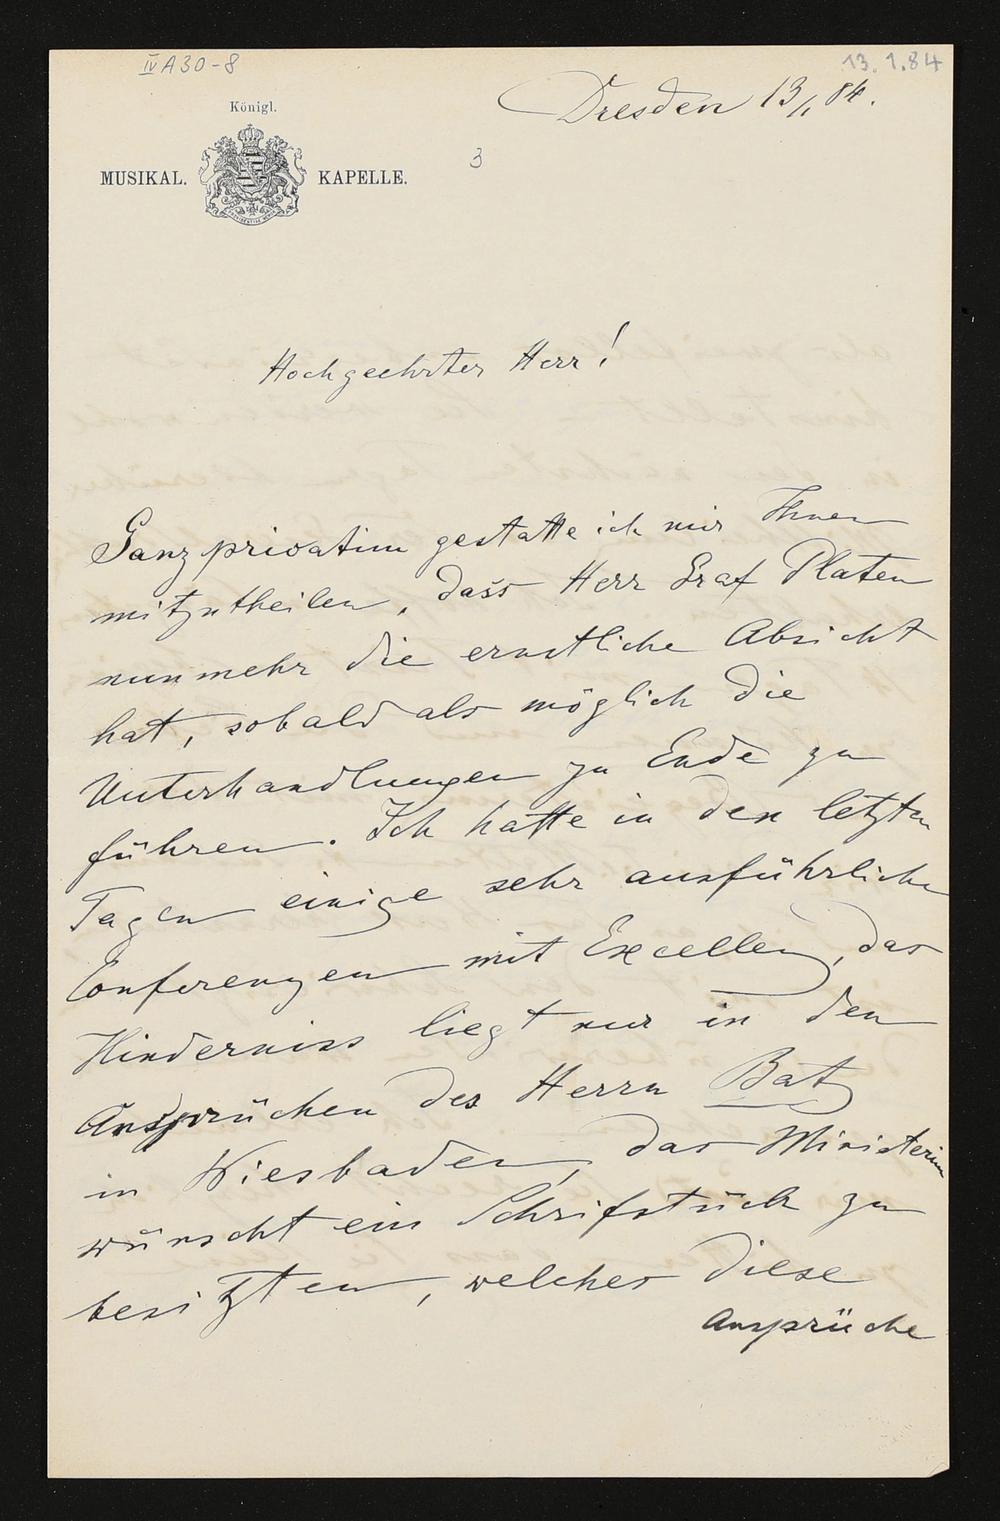 IV A 30-8
13.1.84
Dresden 13/1 84.
Königl.
MUSIKAL. KAPELLE.
3
Hochgeehrter Herr!
Ganz privatim gestatte ich mir Ihnen
mitzutheilen, dass Herr Graf Platen
nunmehr die ernstliche Absicht
hat, sobald als möglich die
Unterhandlungen zu Ende zu
führen. Ich hatte in den letzten
Tagen einige sehr ausführliche
Conferenzen mit Excellenz, das
Hinderniss liegt nur in den
Ansprüchen des Herrn Batz
in Wiesbaden, das Ministerium
wünscht ein Schriftstück zu
besitzten, welches diese
Ansprüche